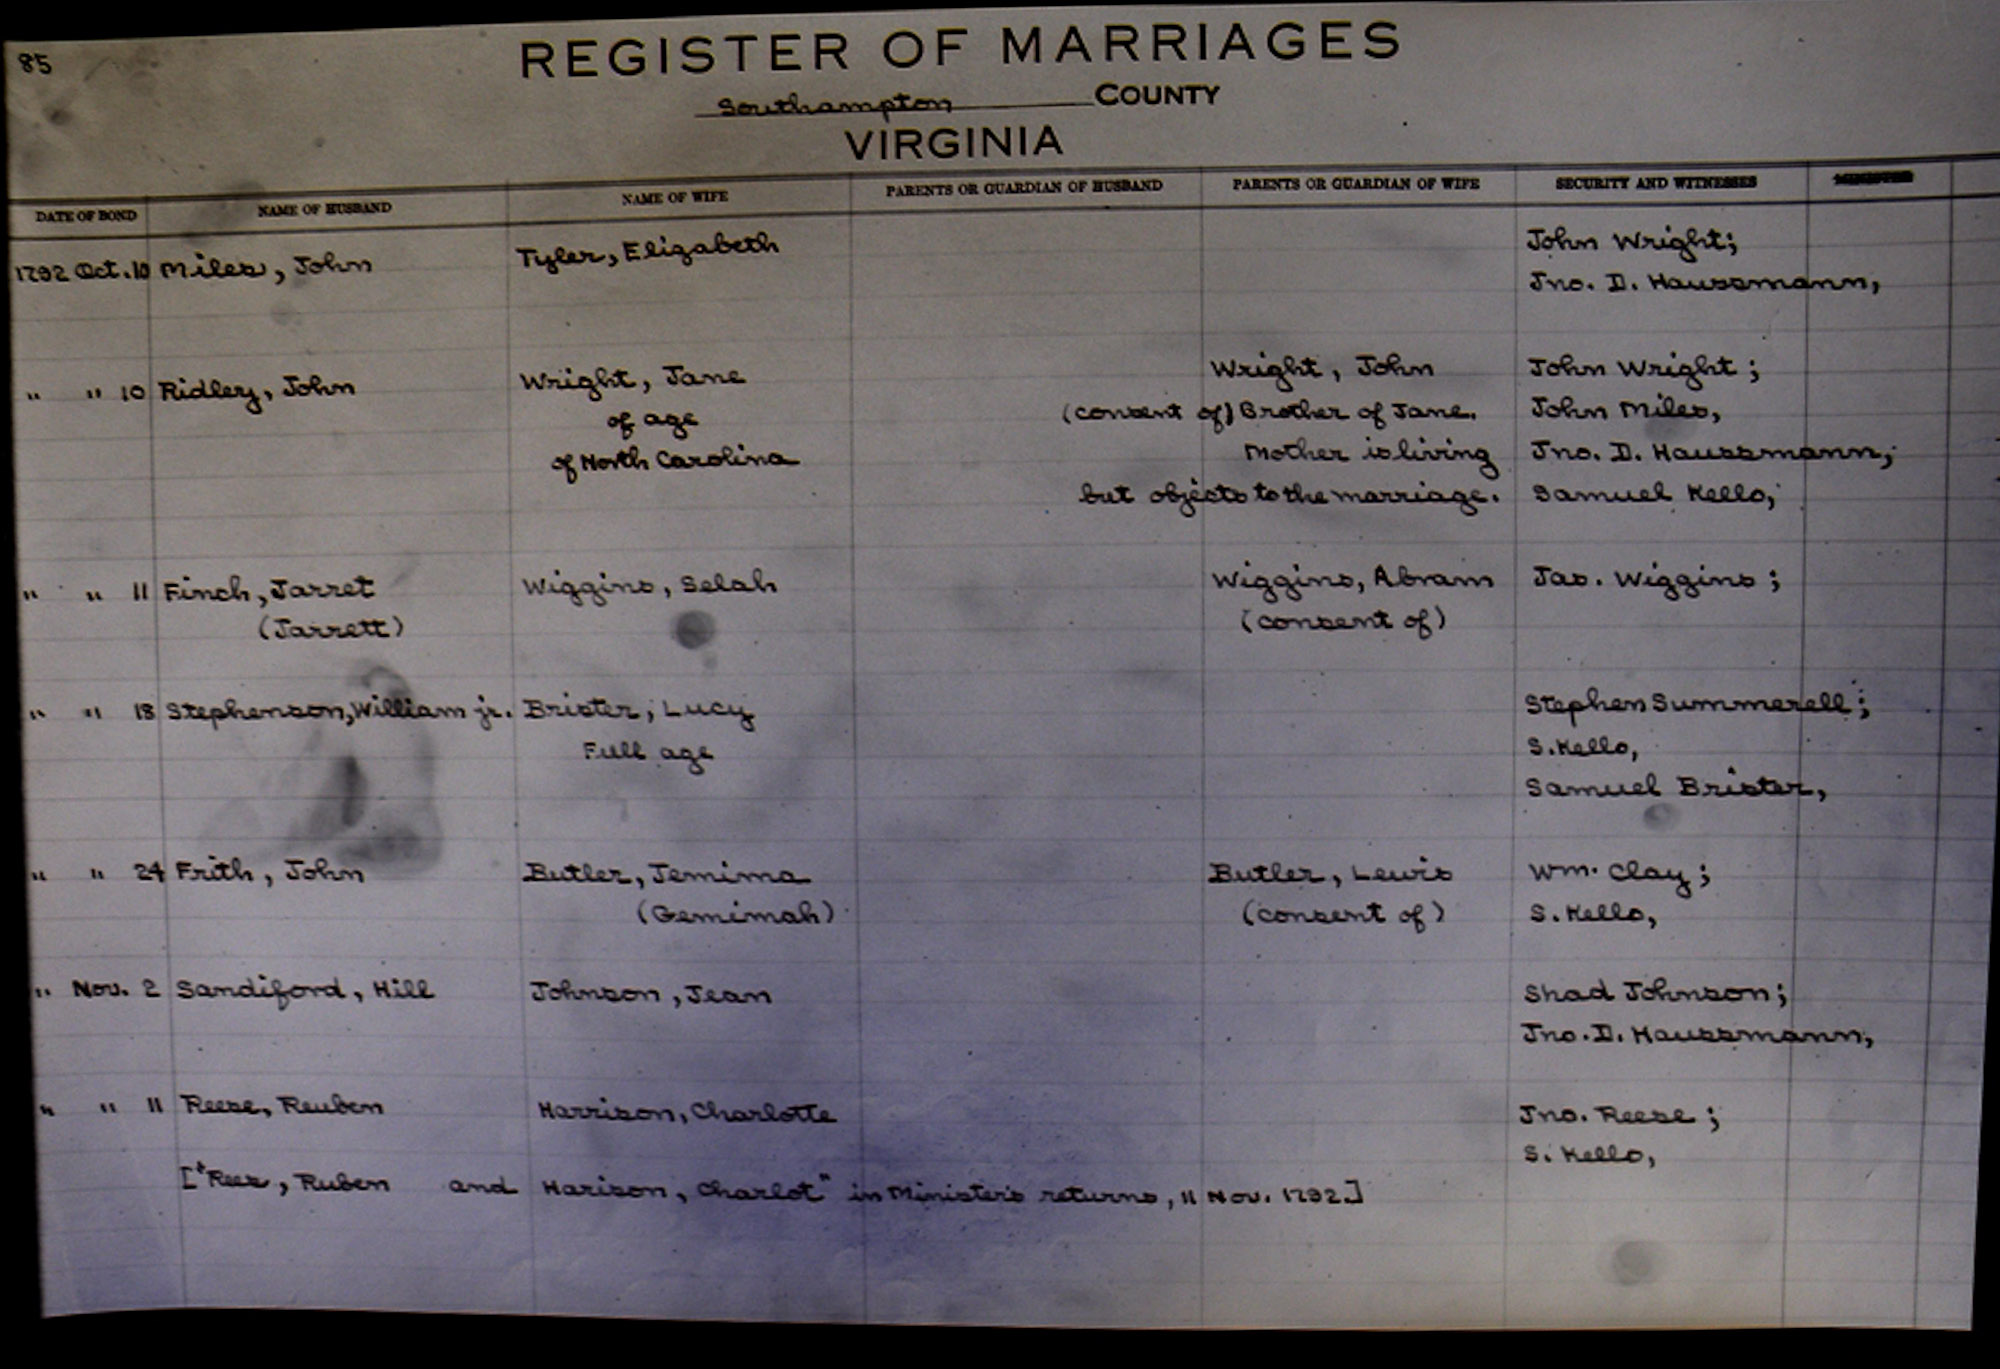 85
REGISTER OF MARRIAGES
Southampton COUNTY
VIRGINIA
DATE OF BOND NAME OF HUSBAND NAME OF WIFE PARENTS OR GUARDIAN OF HUSBAND PARENTS OR GUARDIAN OF WIFE SECURITY AND WITNESSES
1792 Oct. 10 Miles, John Tyler, Elizabeth John Wright;
Jno. D. Haussmann,
" " 10 Ridley, John Wright, Jane Wright, John John Wright;
of age (consent of) Brother of Jane. John Miles,
of North Carolina Mother is living Jno. D. Haussmann,
but objects to the marriage. Samuel Kello,
" " 11 Finch, Jarret Wiggins, Selah Wiggins, Abram Jas. Wiggins;
(Jarrett) (consent of)
" " 18 Stephenson, William jr. Brister, Lucy Stephen Summerell;
Full age S. Kello,
Samuel Brister,
" " 24 Frith, John Butler, Jemima Butler, Lewis Wm. Clay;
(Gemimah) (consent of) S. Kello,
" Nov. 2 Sandiford, Hill Johnson, Jean Shad Johnson;
Jno. D. Haussmann,
" " 11 Reese, Reuben Harrison, Charlotte Jno. Reese;
S. Kello,
["Rees, Ruben and Harison, Charlot" in Minister's returns, 11 Nov. 1792.]